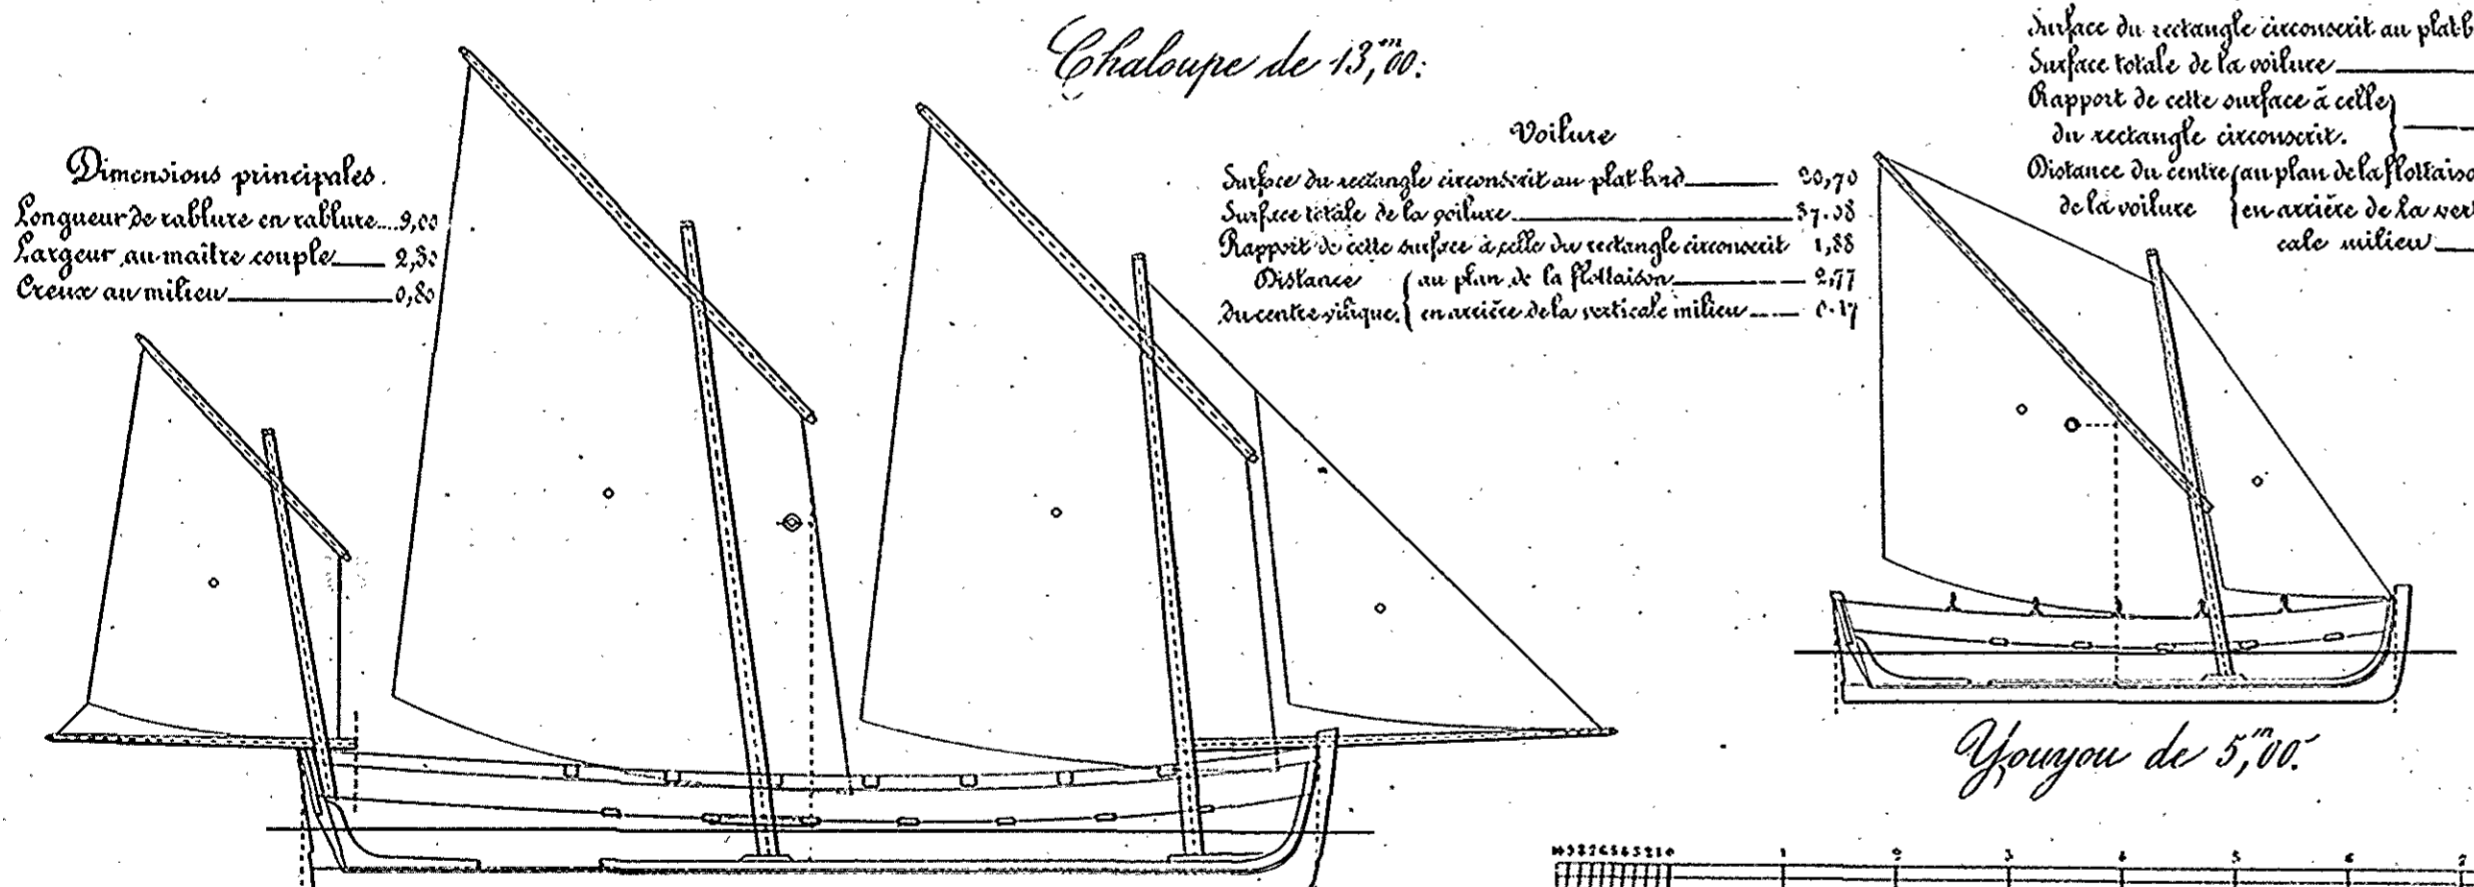 Chaloupe de 13,m00.
Dimensions principales.
Longueur de rablure en rablure....9,00
Largeur au maître couple 2,30
Creux au milieu 0,80
Voilure
Surface du rectangle circonscrit au plat bord 20,70
Surface totale de la voilure
Rapport de cette surface à celle du rectangle circonscrit 1,88
Distance du centre vélique { au plan de la flottaison 2,77
en arrière de la verticale milieu 0.17
Surface du rectangle circonscrit au plat-b
Surface totale de la voilure
Rapport de cette surface à celle
du rectangle circonscrit.
Distance du centre { au plan de la flottaiso
de la voilure { en arrière de la vert
cale milieu
Youyou de 5,m00.
1 2 3 4 5 6 7